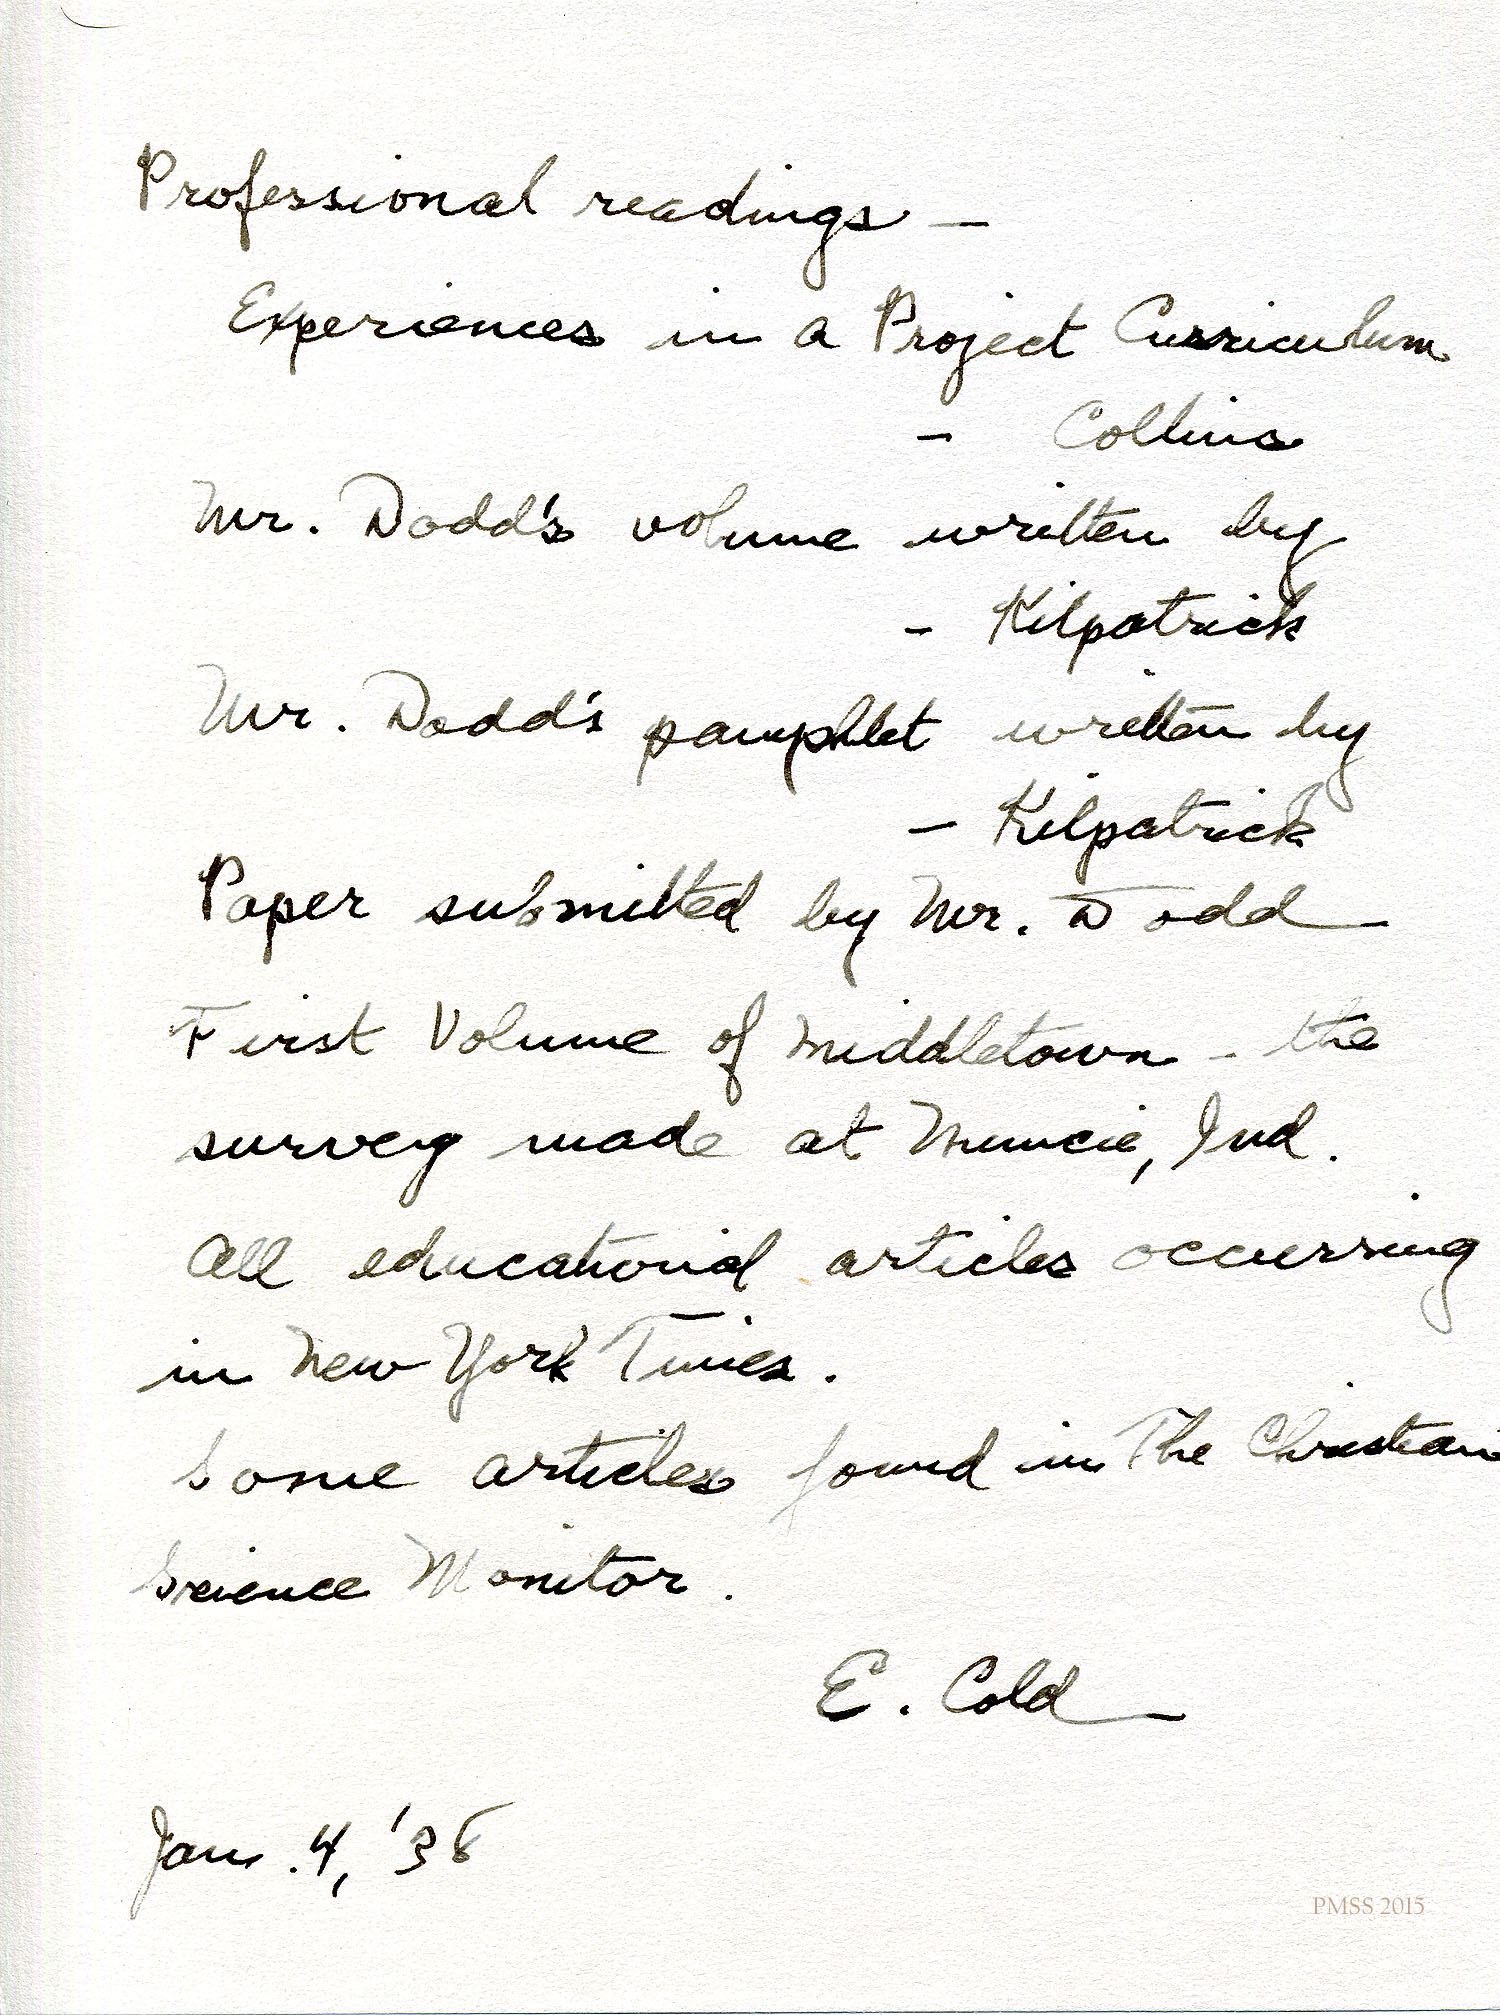 Professional readings —
Experiences in a Project Curriculum
- Collins
Mr. Dodd's volume written by
- Kilpatrick
Mr. Dodd's pamphlet written by
- Kilpatrick
Paper submitted by Mr. Dodd
First Volume of Middletown - the
survey made at Muncie, Ind.
All educational articles occurring
in New York Times.
Some articles found in The Christian
Science Monitor.
E. Cold
Jan. 4, '38
PMSS 2015